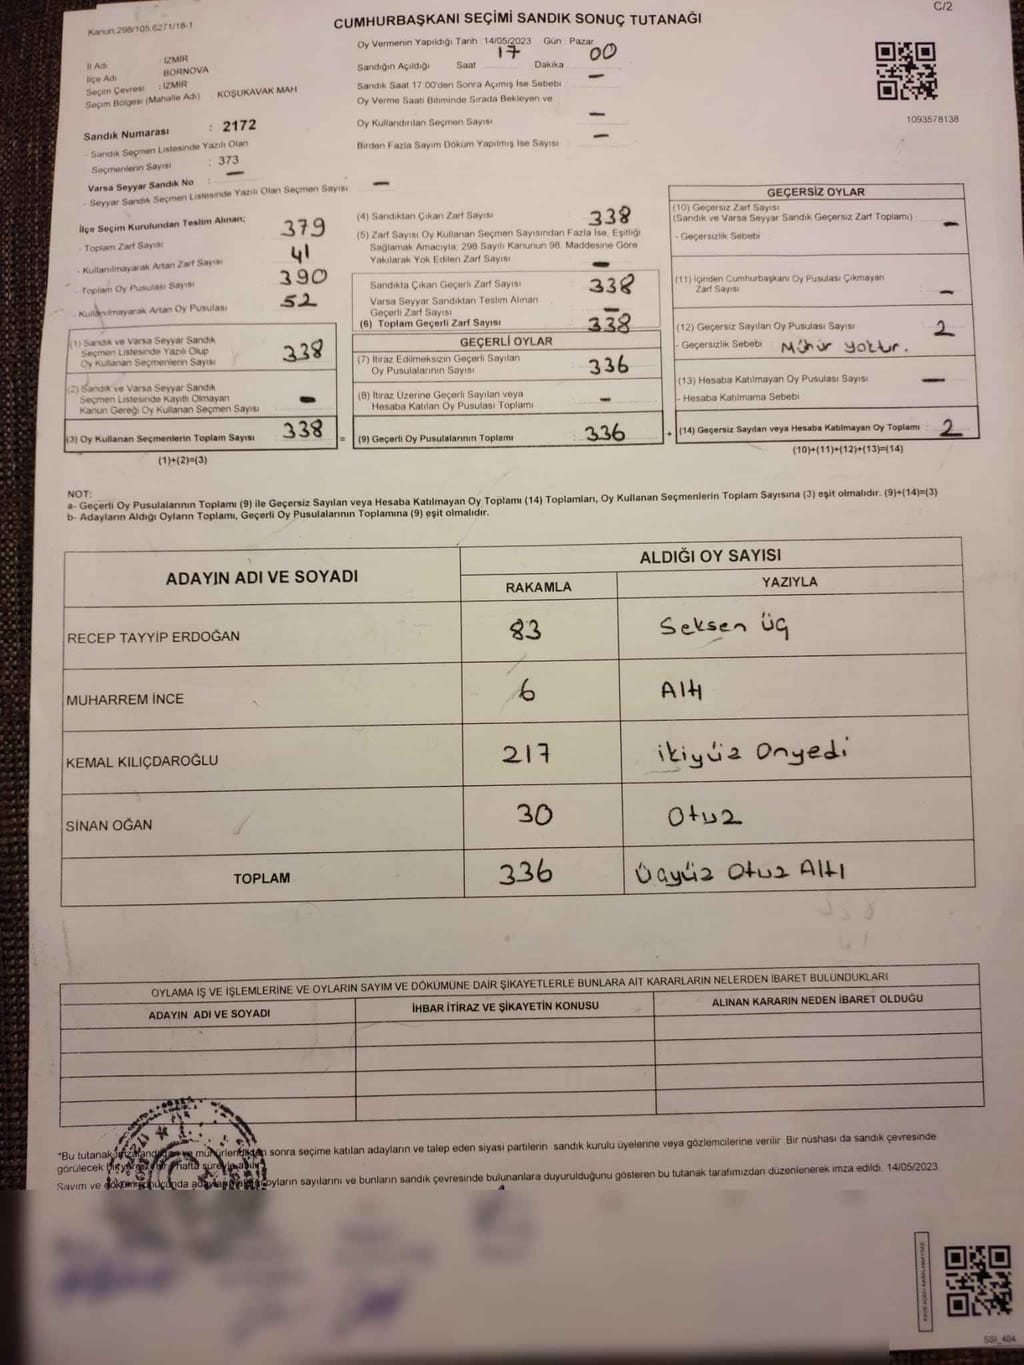 C/2
Kanun:298/105,6271/18-1
CUMHURBAŞKANI SEÇİMİ SANDIK SONUÇ TUTANAĞI
İl Adı : İZMİR
İlçe Adı BORNOVA
Seçim Çevresi : İZMİR
Seçim Bölgesi (Mahalle Adı) KOŞUKAVAK MAH
Sandık Numarası : 2172
- Sandık Seçmen Listesinde Yazılı Olan
Seçmenlerin Sayısı : 373
Varsa Seyyar Sandık No : –
- Seyyar Sandık Seçmen Listesinde Yazılı Olan Seçmen Sayısı –
Oy Vermenin Yapıldığı Tarih :14/05/2023 Gün : Pazar
Sandığın Açıldığı Saat 17 Dakika 00
Sandık Saat 17:00'den Sonra Açımış İse Sebebi –
Oy Verme Saati Bitiminde Sırada Bekleyen ve
Oy Kullandırılan Seçmen Sayısı –
Birden Fazla Sayım Döküm Yapılmış İse Sayısı –
1093578138
İlçe Seçim Kurulundan Teslim Alınan;
- Toplam Zarf Sayısı 379
- Kullanılmayarak Artan Zarf Sayısı 41
- Toplam Oy Pusulası Sayısı 390
- Kullanılmayarak Artan Oy Pusulası 52
(1) Sandık ve Varsa Seyyar Sandık
Seçmen Listesinde Yazılı Olup
Oy Kullanan Seçmenlerin Sayısı 338
(2) Sandık ve Varsa Seyyar Sandık
Seçmen Listesinde Kayıtlı Olmayan
Kanun Gereği Oy Kullanan Seçmen Sayısı –
(3) Oy Kullanan Seçmenlerin Toplam Sayısı 338 =
(1)+(2)=(3)
(4) Sandıktan Çıkan Zarf Sayısı 338
(5) Zarf Sayısı Oy Kullanan Seçmen Sayısından Fazla İse, Eşitliği
Sağlamak Amacıyla, 298 Sayılı Kanunun 98. Maddesine Göre
Yakılarak Yok Edilen Zarf Sayısı –
Sandıkta Çıkan Geçerli Zarf Sayısı 338
Varsa Seyyar Sandıktan Teslim Alınan
Geçerli Zarf Sayısı –
(6) Toplam Geçerli Zarf Sayısı 338
GEÇERLİ OYLAR
(7) İtiraz Edilmeksizin Geçerli Sayılan
Oy Pusulalarının Sayısı 336
(8) İtiraz Üzerine Geçerli Sayılan veya
Hesaba Katılan Oy Pusulası Toplamı –
(9) Geçerli Oy Pusulalarının Toplamı : 336 +
GEÇERSİZ OYLAR
(10) Geçersiz Zarf Sayısı
(Sandık ve Varsa Seyyar Sandık Geçersiz Zarf Toplamı) : –
- Geçersizlik Sebebi :
(11) İçinden Cumhurbaşkanı Oy Pusulası Çıkmayan
Zarf Sayısı –
(12) Geçersiz Sayılan Oy Pusulası Sayısı : 2
- Geçersizlik Sebebi Mühür yoktur.
(13) Hesaba Katılmayan Oy Pusulası Sayısı : –
- Hesaba Katılmama Sebebi
(14) Geçersiz Sayılan veya Hesaba Katılmayan Oy Toplamı : 2
(10)+(11)+(12)+(13)=(14)
NOT:
a- Geçerli Oy Pusulalarının Toplamı (9) ile Geçersiz Sayılan veya Hesaba Katılmayan Oy Toplamı (14) Toplamları, Oy Kullanan Seçmenlerin Toplam Sayısına (3) eşit olmalıdır. (9)+(14)=(3)
b- Adayların Aldığı Oyların Toplamı, Geçerli Oy Pusulalarının Toplamına (9) eşit olmalıdır.
ADAYIN ADI VE SOYADI
ALDIĞI OY SAYISI
RAKAMLA YAZIYLA
RECEP TAYYİP ERDOĞAN 83 Seksen üç
MUHARREM İNCE 6 Altı
KEMAL KILIÇDAROĞLU 217 ikiyüz Onyedi
SİNAN OĞAN 30 Otuz
TOPLAM 336 Üçyüz Otuz Altı
OYLAMA İŞ VE İŞLEMLERİNE VE OYLARIN SAYIM VE DÖKÜMÜNE DAİR ŞİKAYETLERLE BUNLARA AİT KARARLARIN NELERDEN İBARET BULUNDUKLARI
ADAYIN ADI VE SOYADI İHBAR İTİRAZ VE ŞİKAYETİN KONUSU ALINAN KARARIN NEDEN İBARET OLDUĞU
*Bu tutanak, ve mühürlendikten sonra seçime katılan adayların ve talep eden siyasi partilerin sandık kurulu üyelerine veya gözlemcilerine verilir. Bir nüshası da sandık çevresinde
görülecek hafta süreyle
Sayım ve oyların sayılarını ve bunların sandık çevresinde bulunanlara duyurulduğunu gösteren bu tutanak tarafımızdan düzenlenerek imza edildi. 14/05/2023
SSI_404